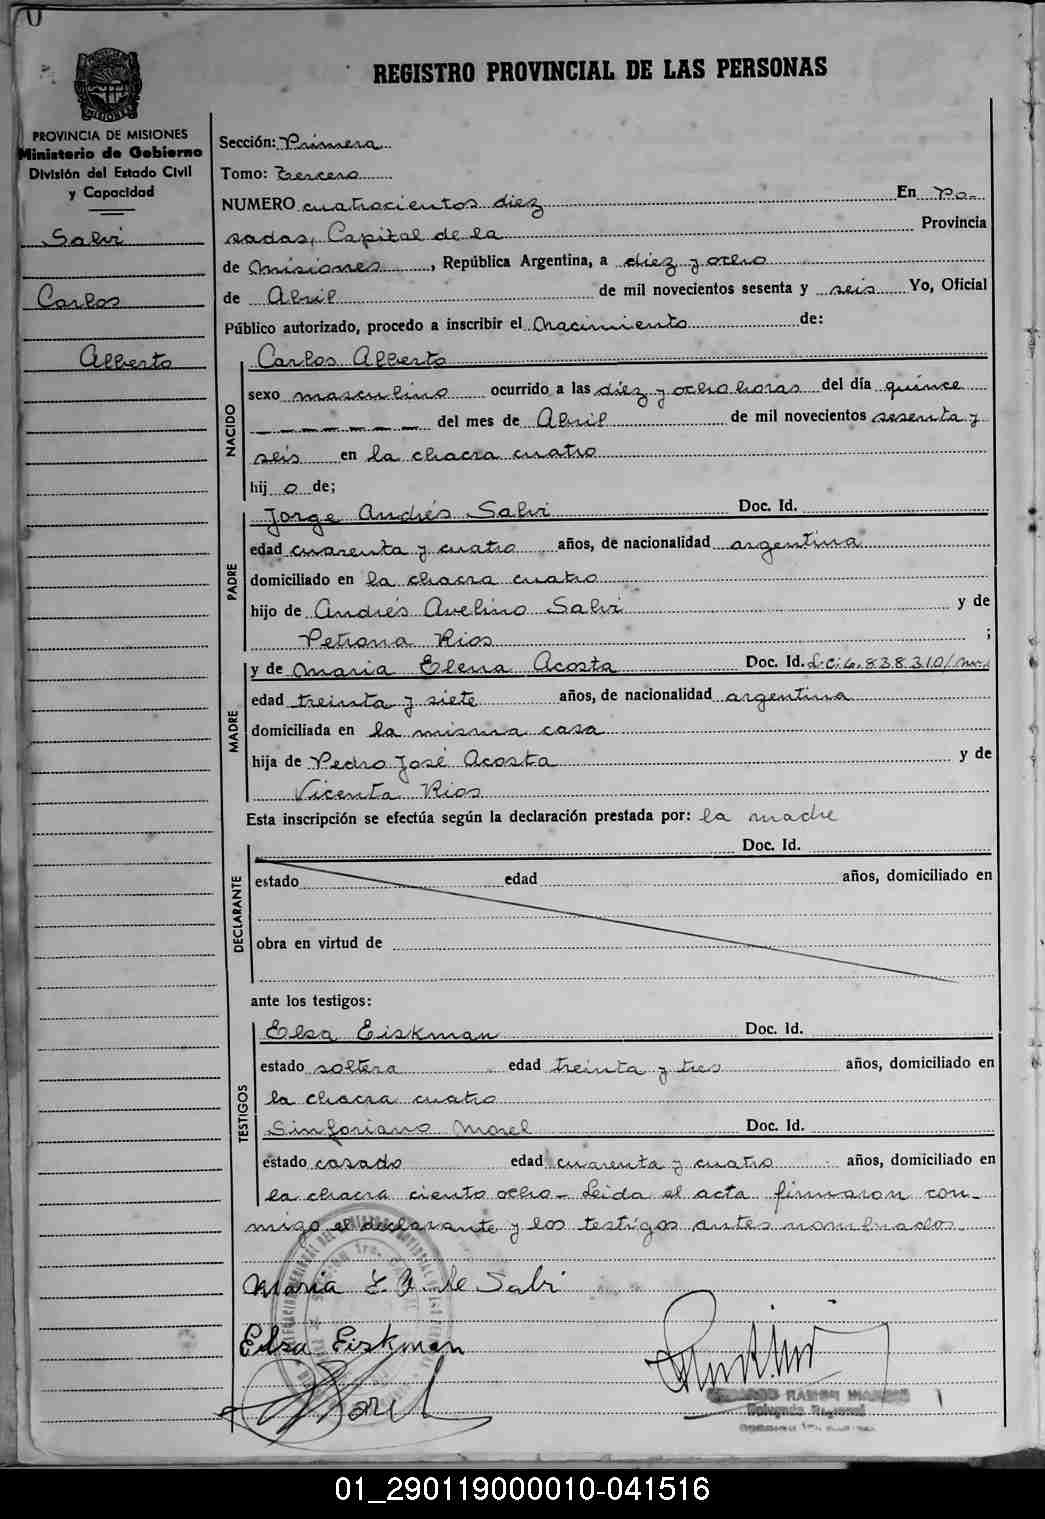 REGISTRO PROVINCIAL DE LAS PERSONAS
PROVINCIA DE MISIONES
Ministerio de Gobierno
División del Estado Civil
y Capacidad
Salvi
Carlos
Alberto
Sección: Primera
Tomo: Tercero
NUMERO cuatrocientos diez En Po-
sadas, Capital de la Provincia
de Misiones, República Argentina, a diez y ocho
de Abril de mil novecientos sesenta y seis Yo, Oficial
Público autorizado, procedo a inscribir el Nacimiento de:
NACIDO
Carlos Alberto
sexo masculino ocurrido a las diez y ocho horas del día quince
del mes de Abril de mil novecientos sesenta y
seis en la chacra cuatro
hij o de;
PADRE
Jorge Andrés Salvi Doc. Id.
edad cuarenta y cuatro años, de nacionalidad argentina
domiciliado en la chacra cuatro
hijo de Andrés Avelino Salvi y de
Petrona Rios ;
MADRE
y de Maria Elena Acosta Doc. Id. L.C. 6.838.310
edad treinta y siete años, de nacionalidad argentina
domiciliada en la misma casa
hija de Pedro José Acosta y de
Vicenta Rios
Esta inscripción se efectúa según la declaración prestada por: la madre
DECLARANTE
Doc. Id.
estado edad años, domiciliado en
obra en virtud de
ante los testigos:
TESTIGOS
Elsa Eiskman Doc. Id.
estado soltera edad treinta y tres años, domiciliado en
la chacra cuatro
Sinforiano Morel Doc. Id.
estado casado edad cuarenta y cuatro años, domiciliado en
la chacra ciento ocho - Leida el acta firmaron con-
migo el declarante y los testigos antes nombrados.
Maria E. A. de Salvi
Elsa Eiskman
Morel
Delegado Regional
01_290119000010-041516